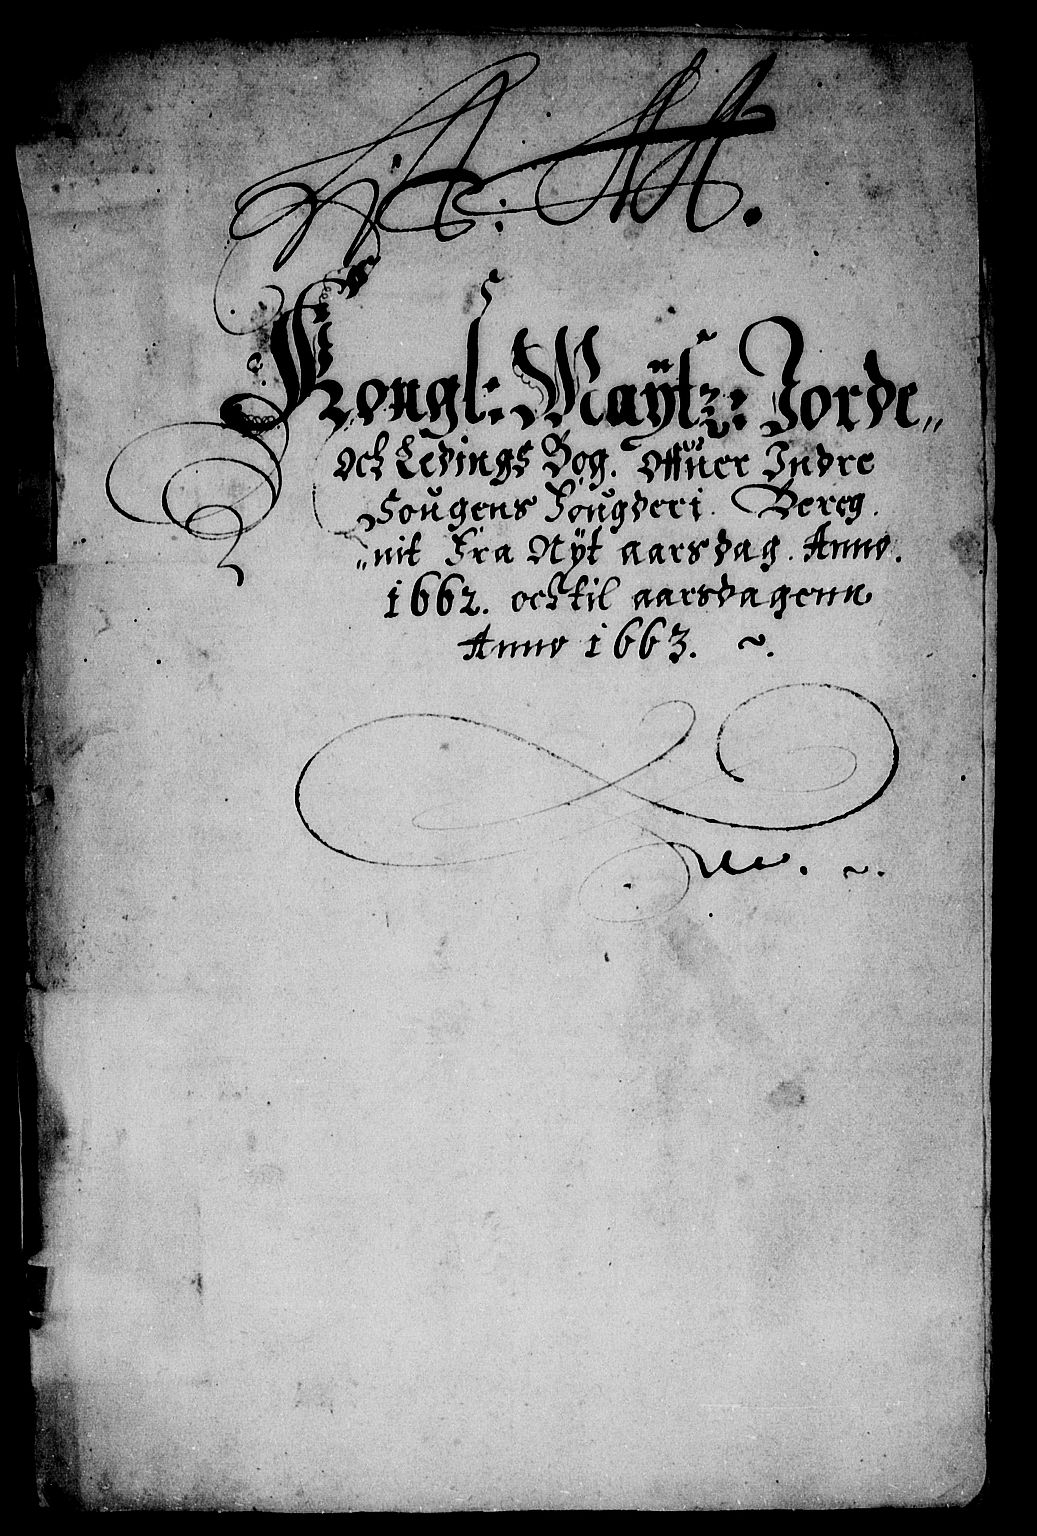 Kongl: Maÿtz: Jorde„
och Ledings Bog. Offuer Indre
Sougens Fougderi. Bereg.
„nit Fra Nÿt aarsdag. Anno.
1662. och til aarsdagenn
Anno 1663. ~.